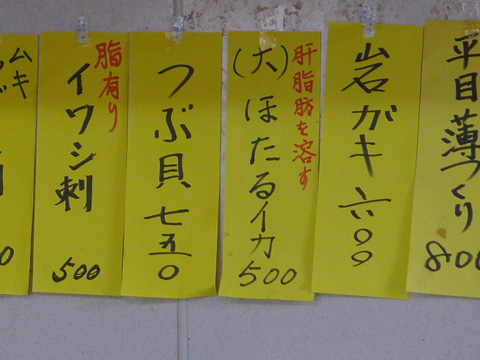 平目薄つくり
800
岩ガキ六〇〇
肝脂肪を溶す
(大)ほたるイカ
500
つぶ貝七五〇
脂有り
イワシ刺
500
ムキ